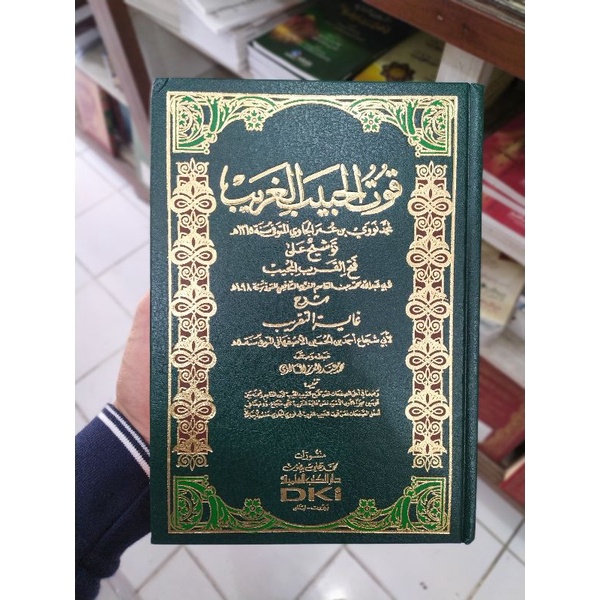 قوت الحبيب الغريب
لمحمد نووي بن عمر الجاوي المتوفى سنة ١٣١٥هـ
توشيح على
فتح القريب المجيب
لأبي عبد الله محمد بن القاسم الغزي الشافعي المتوفى سنة ٩١٨هـ
شرح
غاية التقريب
لأبي شجاع أحمد بن الحسين الأصفهاني المتوفى سنة ٥٠٠هـ
ضبطه وصححه
محمد عبد العزيز الخالدي
تنبيه
منشورات
محمد علي بيضون
دار الكتب العلمية
DKi
بيروت - لبنان